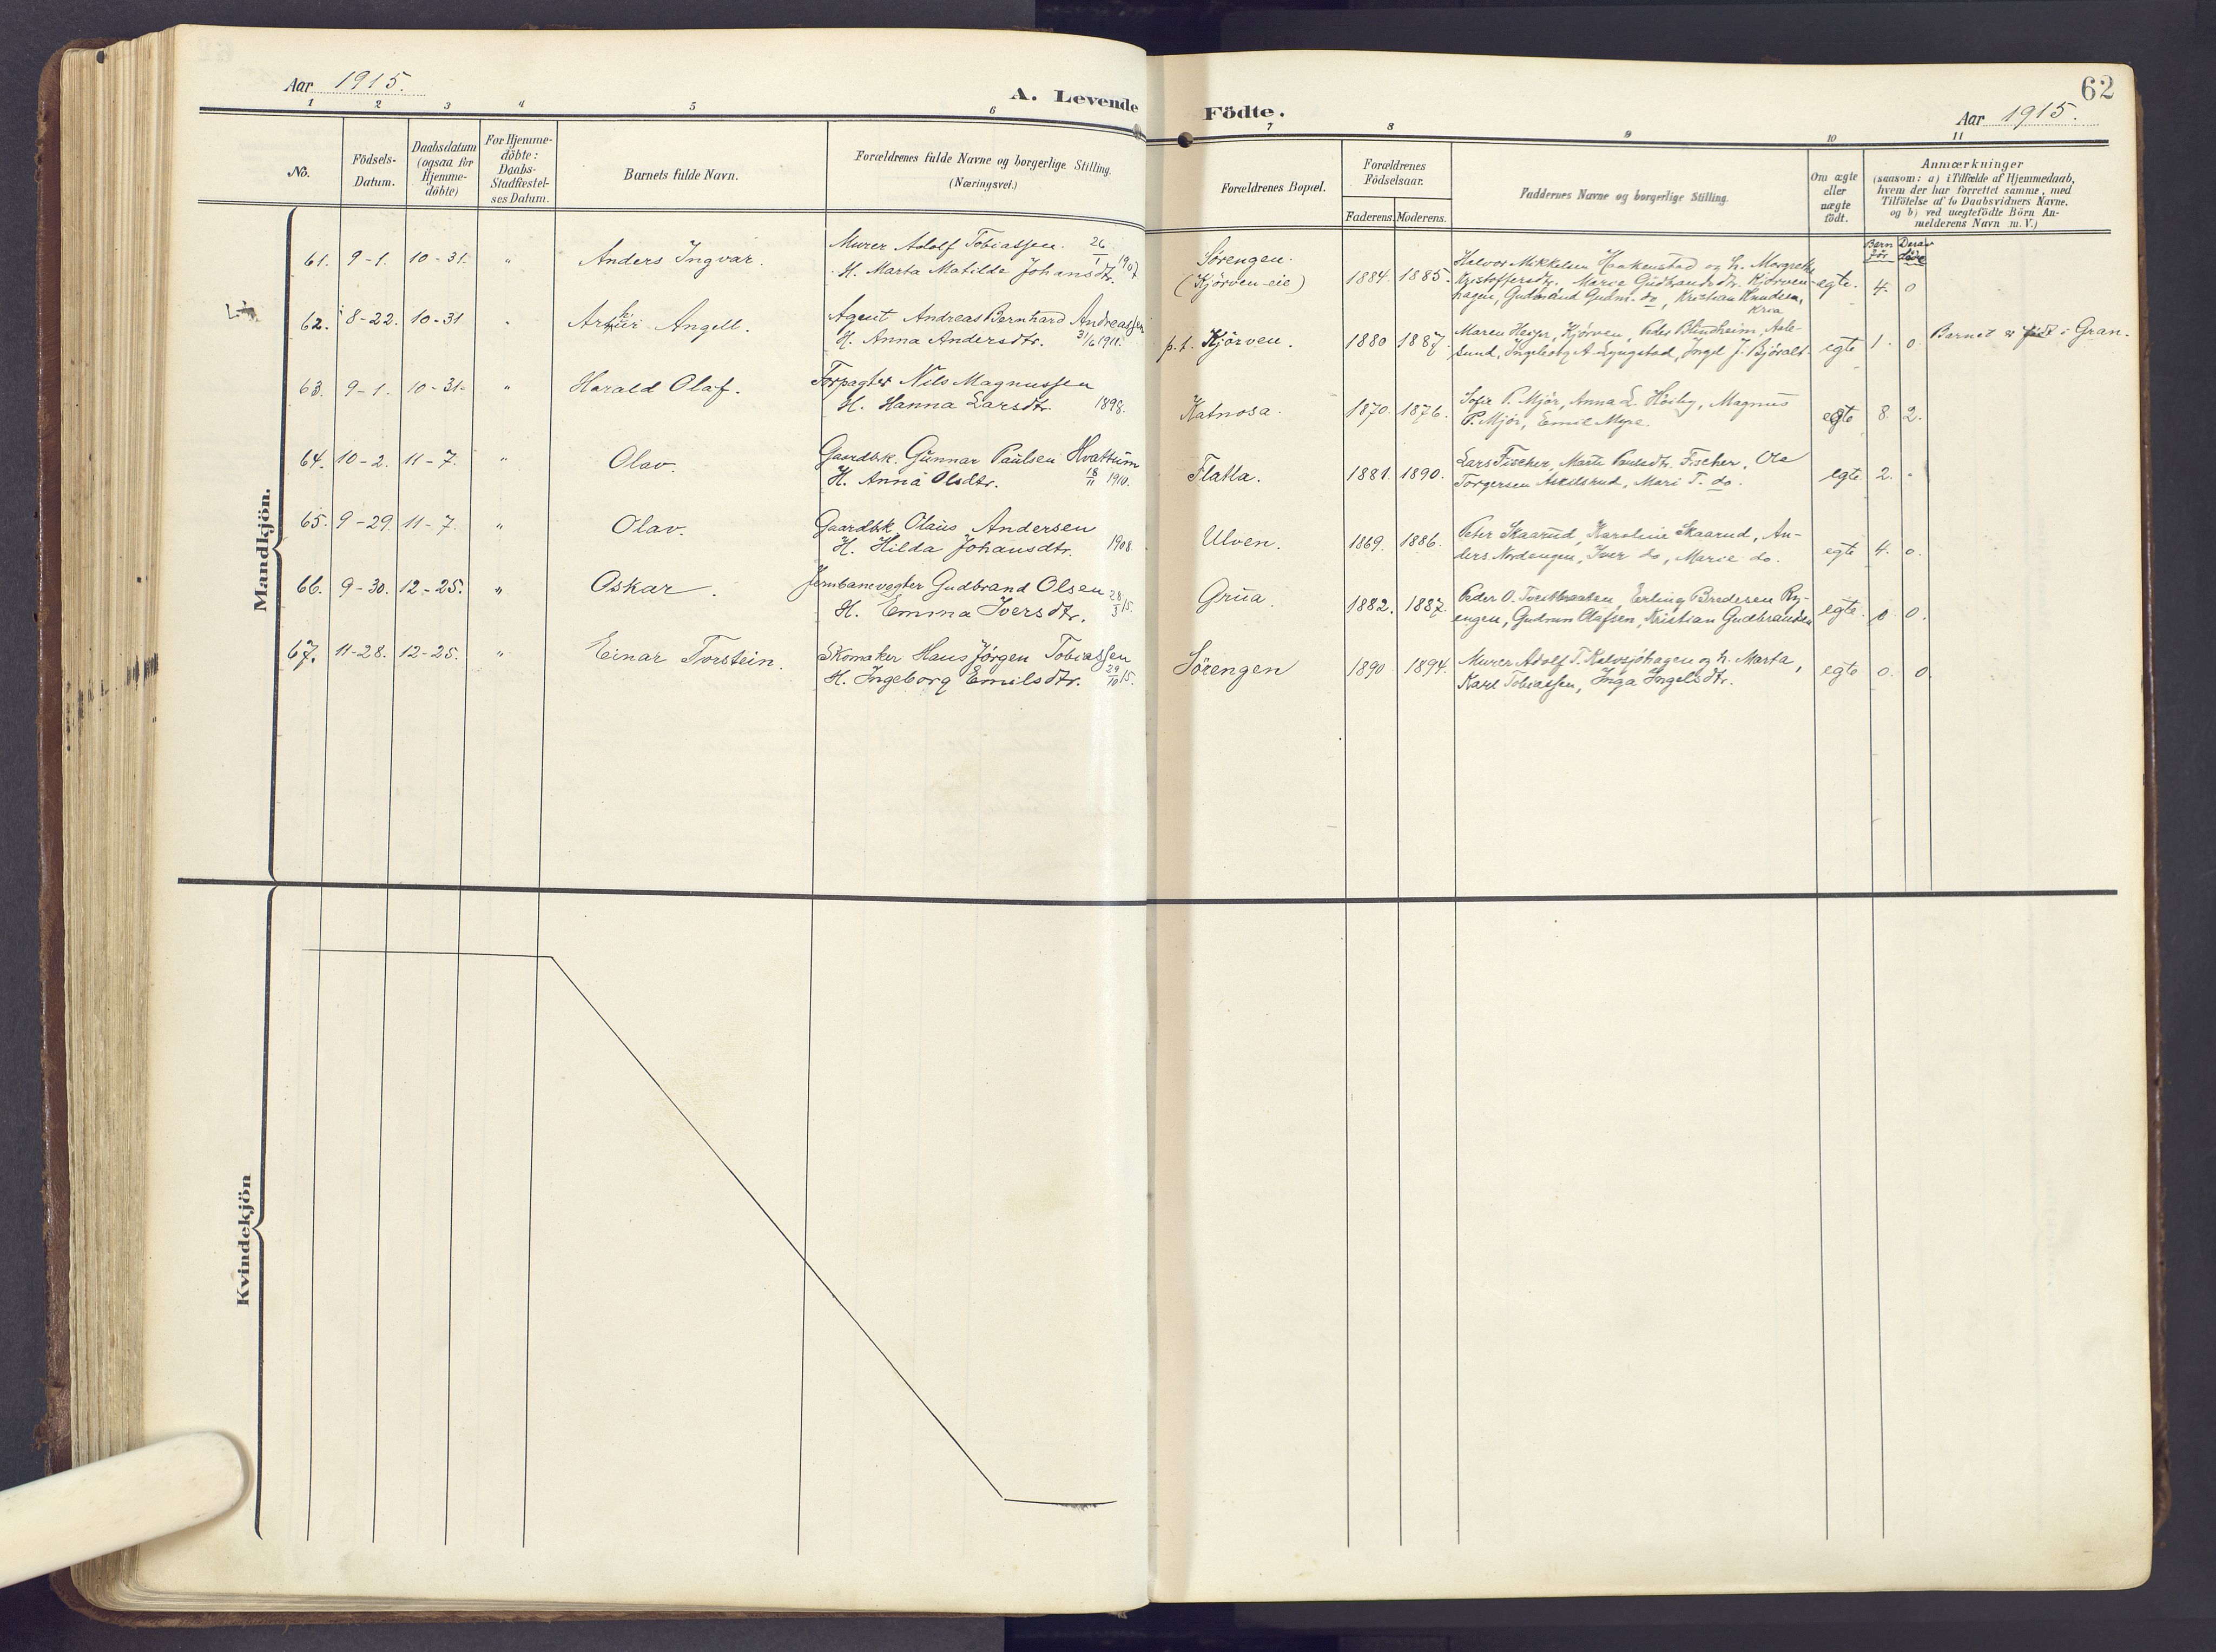 62
Aar 1915.
A. Levende Födte.
Aar 1915.
1 2 3 4 5 6 7 8 9 10 11
No.
Födsels-
Datum.
Daabsdatum
(ogsaa for
Hjemme-
döbte)
For Hjemme-
döbte:
Daabs-
Stadfæstel-
ses Datum.
Barnets fulde Navn.
Forældrenes fulde Navne og borgerlige Stilling.
(Næringsvei.)
Forældrenes Bopæl.
Forældrenes
Födselsaar.
Faderens. Moderens.
Faddernes Navne og borgerlige Stilling.
Om ægte
eller
uægte
födt.
Anmærkninger
(saasom: a) i Tilfælde af Hjemmedaab,
hvem der har forrettet samme, med
Tilföielse af to Daabsvidners Navne.
og b) ved uægtefödte Börn An-
melderens Navn m. V.)
Barn för Derav döde
Mandkjön.
61. 9-1. 10-31. " Anders Ingvar. Murer Adolf Tobiassen. 26/1 1907
H. Marta Matilde Johansdtr.
Sørengen.
(Kjörven-eie)
1884. 1885.
Halvor Mikkelsen Haakenstad og h. Margrethe
Kristoffersdtr., Marie Gudbrandsdtr. Kjørven-
hagen, Gudbrand Gudm. do, Kristian Knudsen,
Kria
egte. 4. 0
62. 8-22. 10-31 " Arthur Angell. Agent Andreas Bernhard Andreassen
H. Anna Andersdtr. 3/6 1911.
p.t. Kjörven. 1880 1887.
Maren Heier, Kjörven, Peder Blindheim, Aale-
sund, Ingeborg A. Lyngstad, Ingel J. Björalt-
egte 1. 0 Barnet er født i Gran.
63. 9-1. 10-31. " Harald Olaf. Forpagter Nils Magnussen
H. Hanna Larsdtr. 1898.
Katnosa. 1870. 1876.
Sofie P. Mjör, Anna L. Höiby, Magnus
P. Mjör, Emil Myre.
egte 8. 2.
64. 10-2. 11-7. " Olav. Gaardbk. Gunnar Paulsen Hvattum
H. Anna Olsdtr. 18/11 1910.
Flatla. 1881. 1890.
Lars Fischer, Marte Paulsdtr. Fischer, Ole
Torgersen Askilsrud, Mari T. do.
egte. 2. -
65. 9-29. 11-7. " Olav. Gaardbk. Olaus Andersen
H. Hilda Johansdtr. 1908.
Ulven. 1869. 1886.
Peter Skaarud, Karoline Skaarud, An-
ders Nordengen, Iver do, Marie do.
egte 4. 0.
66. 9-30. 12-25. " Oskar. Jernbanevogter Gudbrand Olsen
H. Emma Iversdtr. 28/3 15.
Grua. 1882. 1887.
Peder O. Tveitbraaten, Erling Bredesen Ry-
engen, Gudrun Olafsen, Kristian Gudbrandsen
egte. 0 0.
67. 11-28. 12-25. " Einar Torstein. Skomaker Hans Jørgen Tobiassen
H. Ingeborg Emilsdtr. 29/10 15.
Sörengen 1890 1894.
Murer Adolf T. Kalvsjöhagen og h. Marta,
Karl Tobiassen, Inga Ingelsdtr.
egte 0. 0.
Kvindekjön